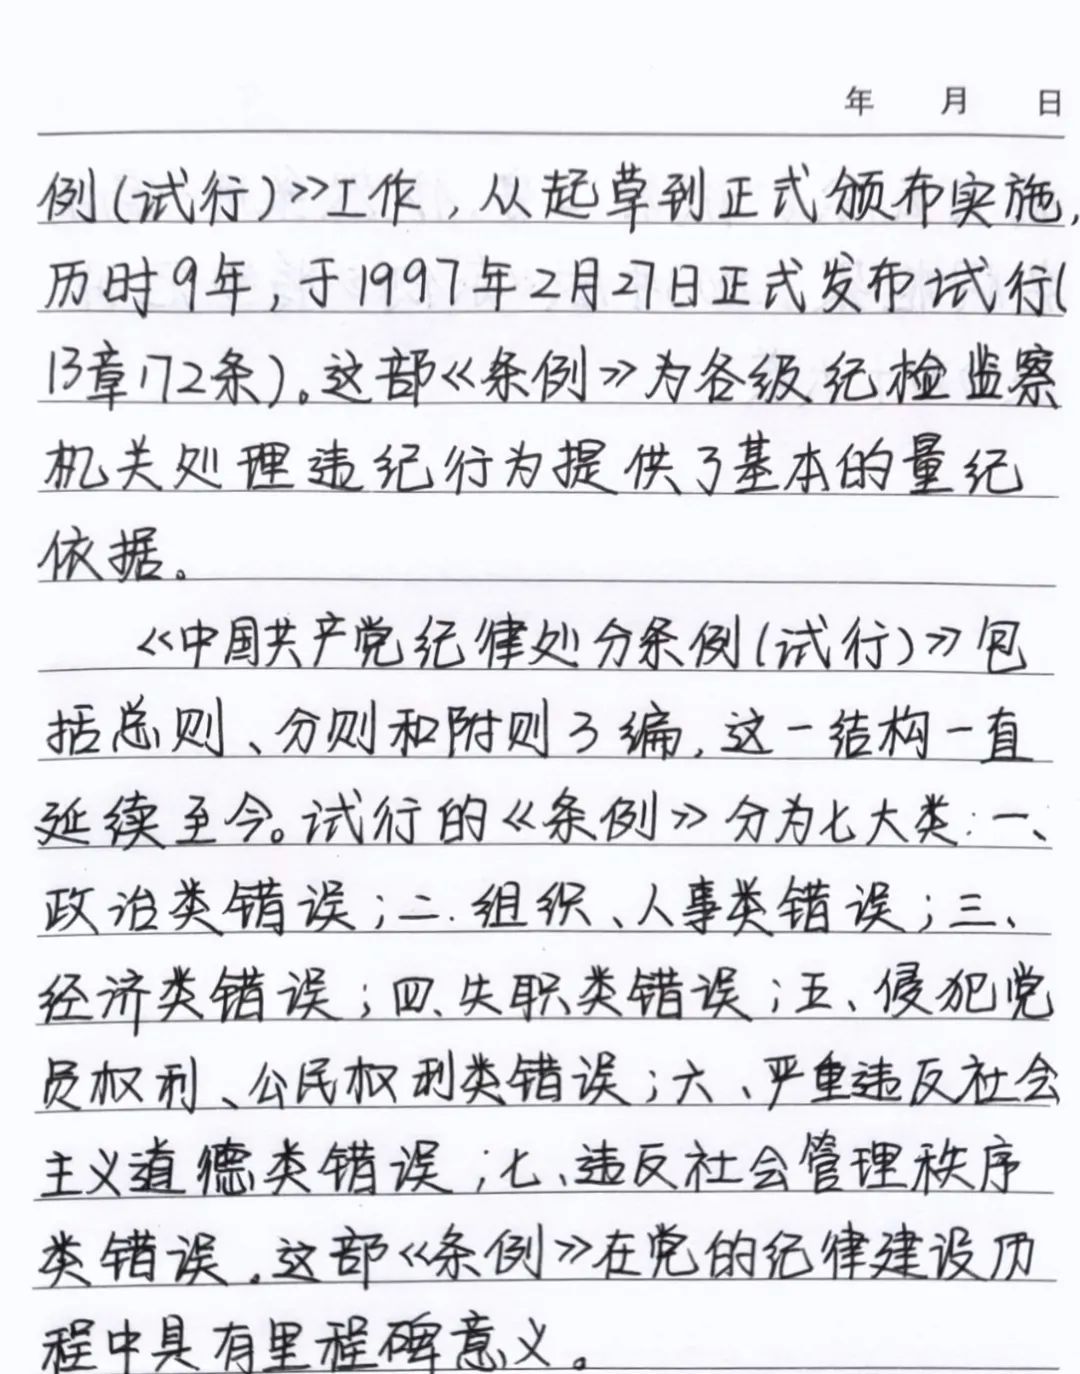 年 月 日
例(试行)》工作,从起草到正式颁布实施,
历时9年,于1997年2月27日正式发布试行(
13章172条)。这部《条例》为各级纪检监察
机关处理违纪行为提供了基本的量纪
依据。
《中国共产党纪律处分条例(试行)》包
括总则、分则和附则3编,这一结构一直
延续至今。试行的《条例》分为七大类:一、
政治类错误;二.组织、人事类错误;三、
经济类错误;四、失职类错误;五、侵犯党
员权利、公民权利类错误;六、严重违反社会
主义道德类错误;七、违反社会管理秩序
类错误。这部《条例》在党的纪律建设历
程中具有里程碑意义。